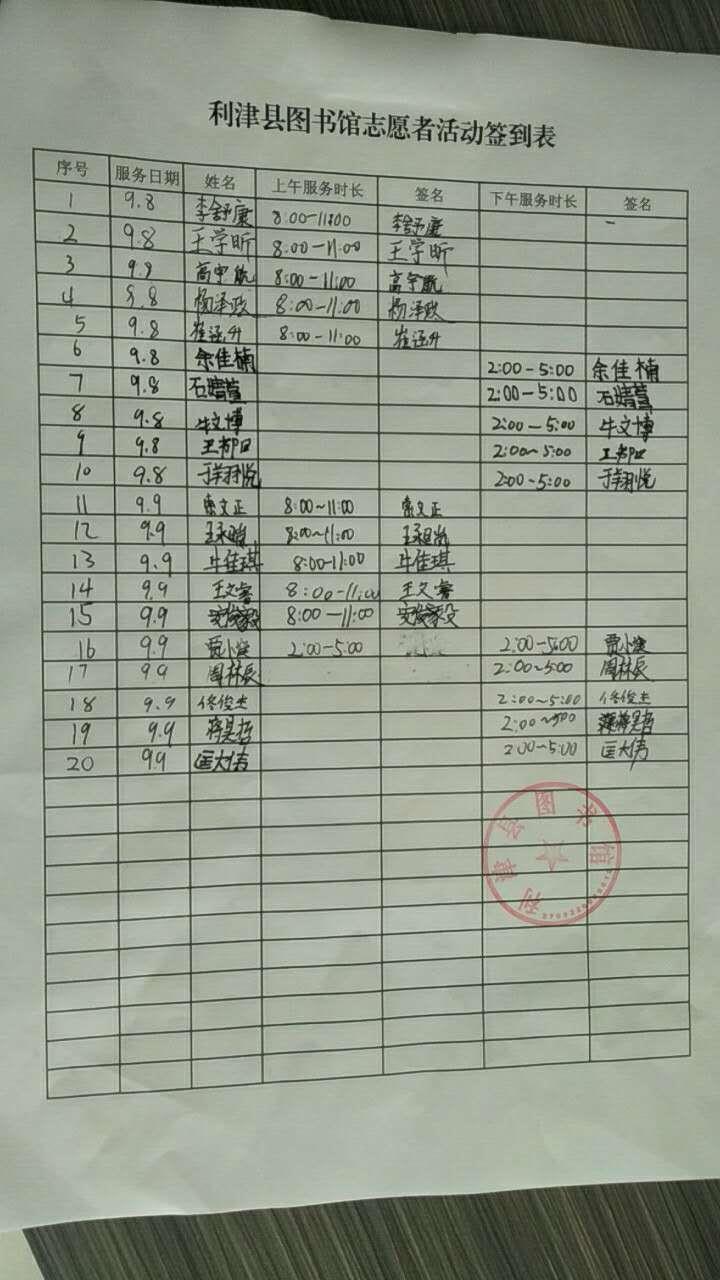 利津县图书馆志愿者活动签到表
序号 服务日期 姓名 上午服务时长 签名 下午服务时长 签名
1 9.8 李舒康 8:00-11:00 李舒康
2 9.8 王学昕 8:00-11:00 王学昕
3 9.8 高宇航 8:00-11:00 高宇航
4 9.8 杨泽政 8:00-11:00 杨泽政
5 9.8 8:00-11:00
6 9.8 余佳楠 2:00-5:00 余佳楠
7 9.8 石婧萱 2:00-5:00 石婧萱
8 9.8 牛文博 2:00-5:00 牛文博
9 9.8 2:00~5:00
10 9.8 于翔悦 2:00-5:00 于翔悦
11 9.9 8:00~11:00
12 9.9 8:00~11:00
13 9.9 牛佳琪 8:00-11:00 牛佳琪
14 9.9 王文睿 8:00-11:00 王文睿
15 9.9 8:00-11:00
16 9.9 2:00-5:00 2:00-5:00
17 9.9 周林辰 2:00~5:00 周林辰
18 9.9 佟俊杰 2:00~5:00 佟俊杰
19 9.9 蒋昊哲 2:00~5:00 蒋昊哲
20 9.9 匡大伟 2:00~5:00 匡大伟
利津县图书馆